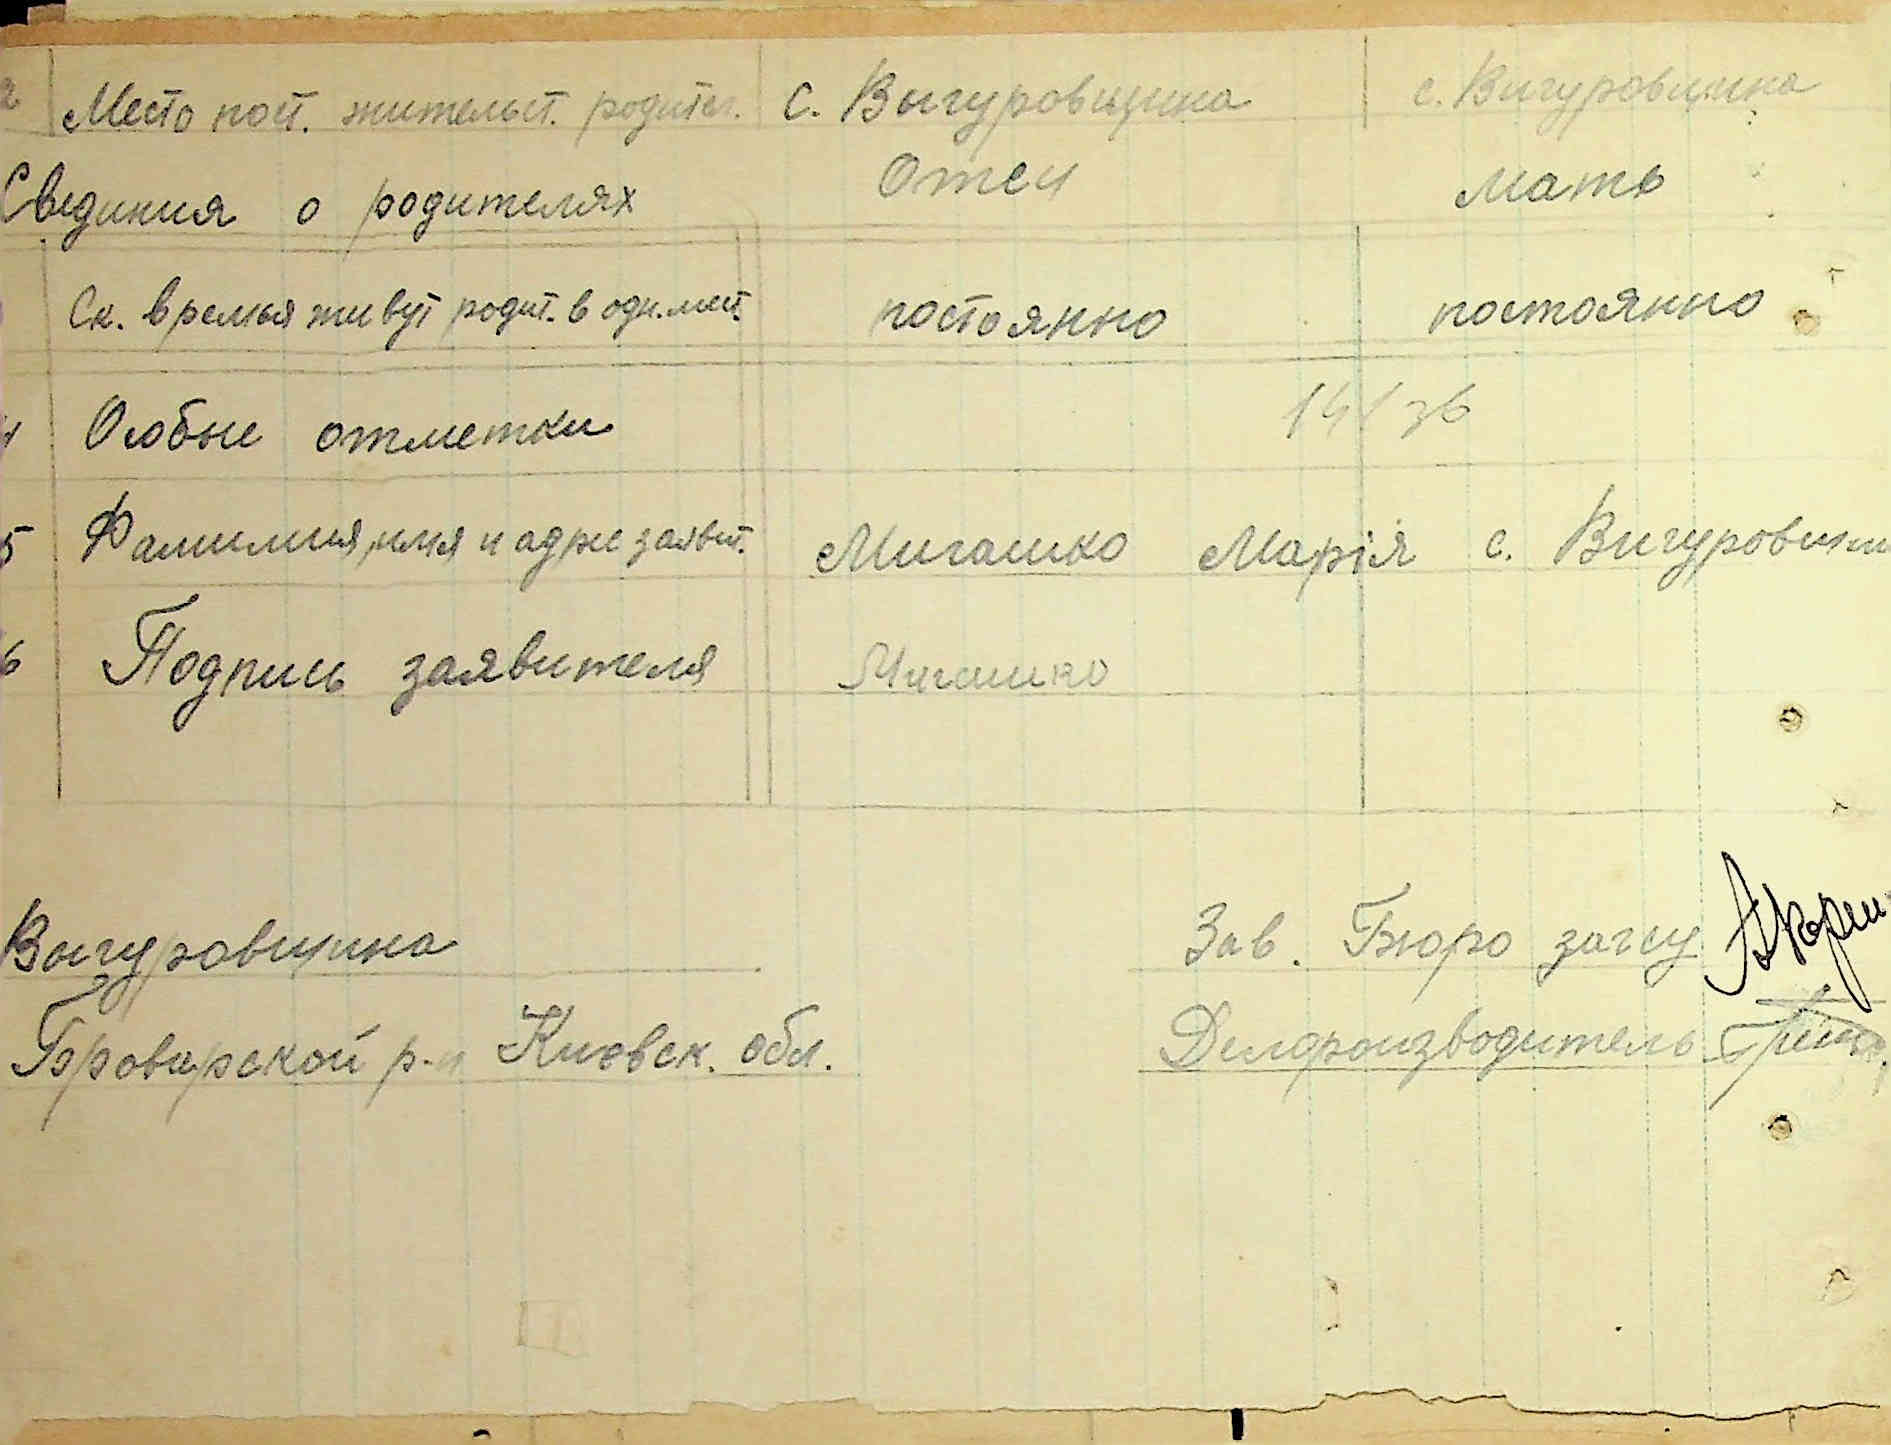 2 Место пост. жительст. родител. с. Выгуровщина с. Вигуровщина
Свединия о родителях Отец Мать
Ск. времья живут родит. в одн. мест. постоянно постоянно
4 Особые отметки
5 Фамилия, имя и адрес заявит. Мигашко Марія с. Вигуровщин
6 Подпись заявителя Мигашко
Выгуровщина Зав. Бюро загсу
Броварской р-н Киевск. обл. Делопроизводитель